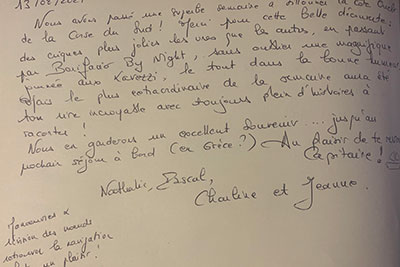 Nous avons passé une superbe semaine à sillonner la côte
de la Corse du Sud ! Merci pour cette belle découverte
des criques plus jolies les unes que les autres, en passant
par Bonifacio By Night, sans oublier une magnifique
journée aux Lavezzi, le tout dans la bonne humeur
le plus extraordinaire de la semaine aura été
ton rire incroyable avec toujours plein d'histoires à
raconter !
Nous en garderons un excellent souvenir .... jusqu'au
prochain séjour à bord (en Grèce ?) Au plaisir de te
Capitaine !
Nathalie, Pascal,
Charline et Jeanne.
Manoeuvres &
des noeuds
retrouver la navigation
un plaisir !